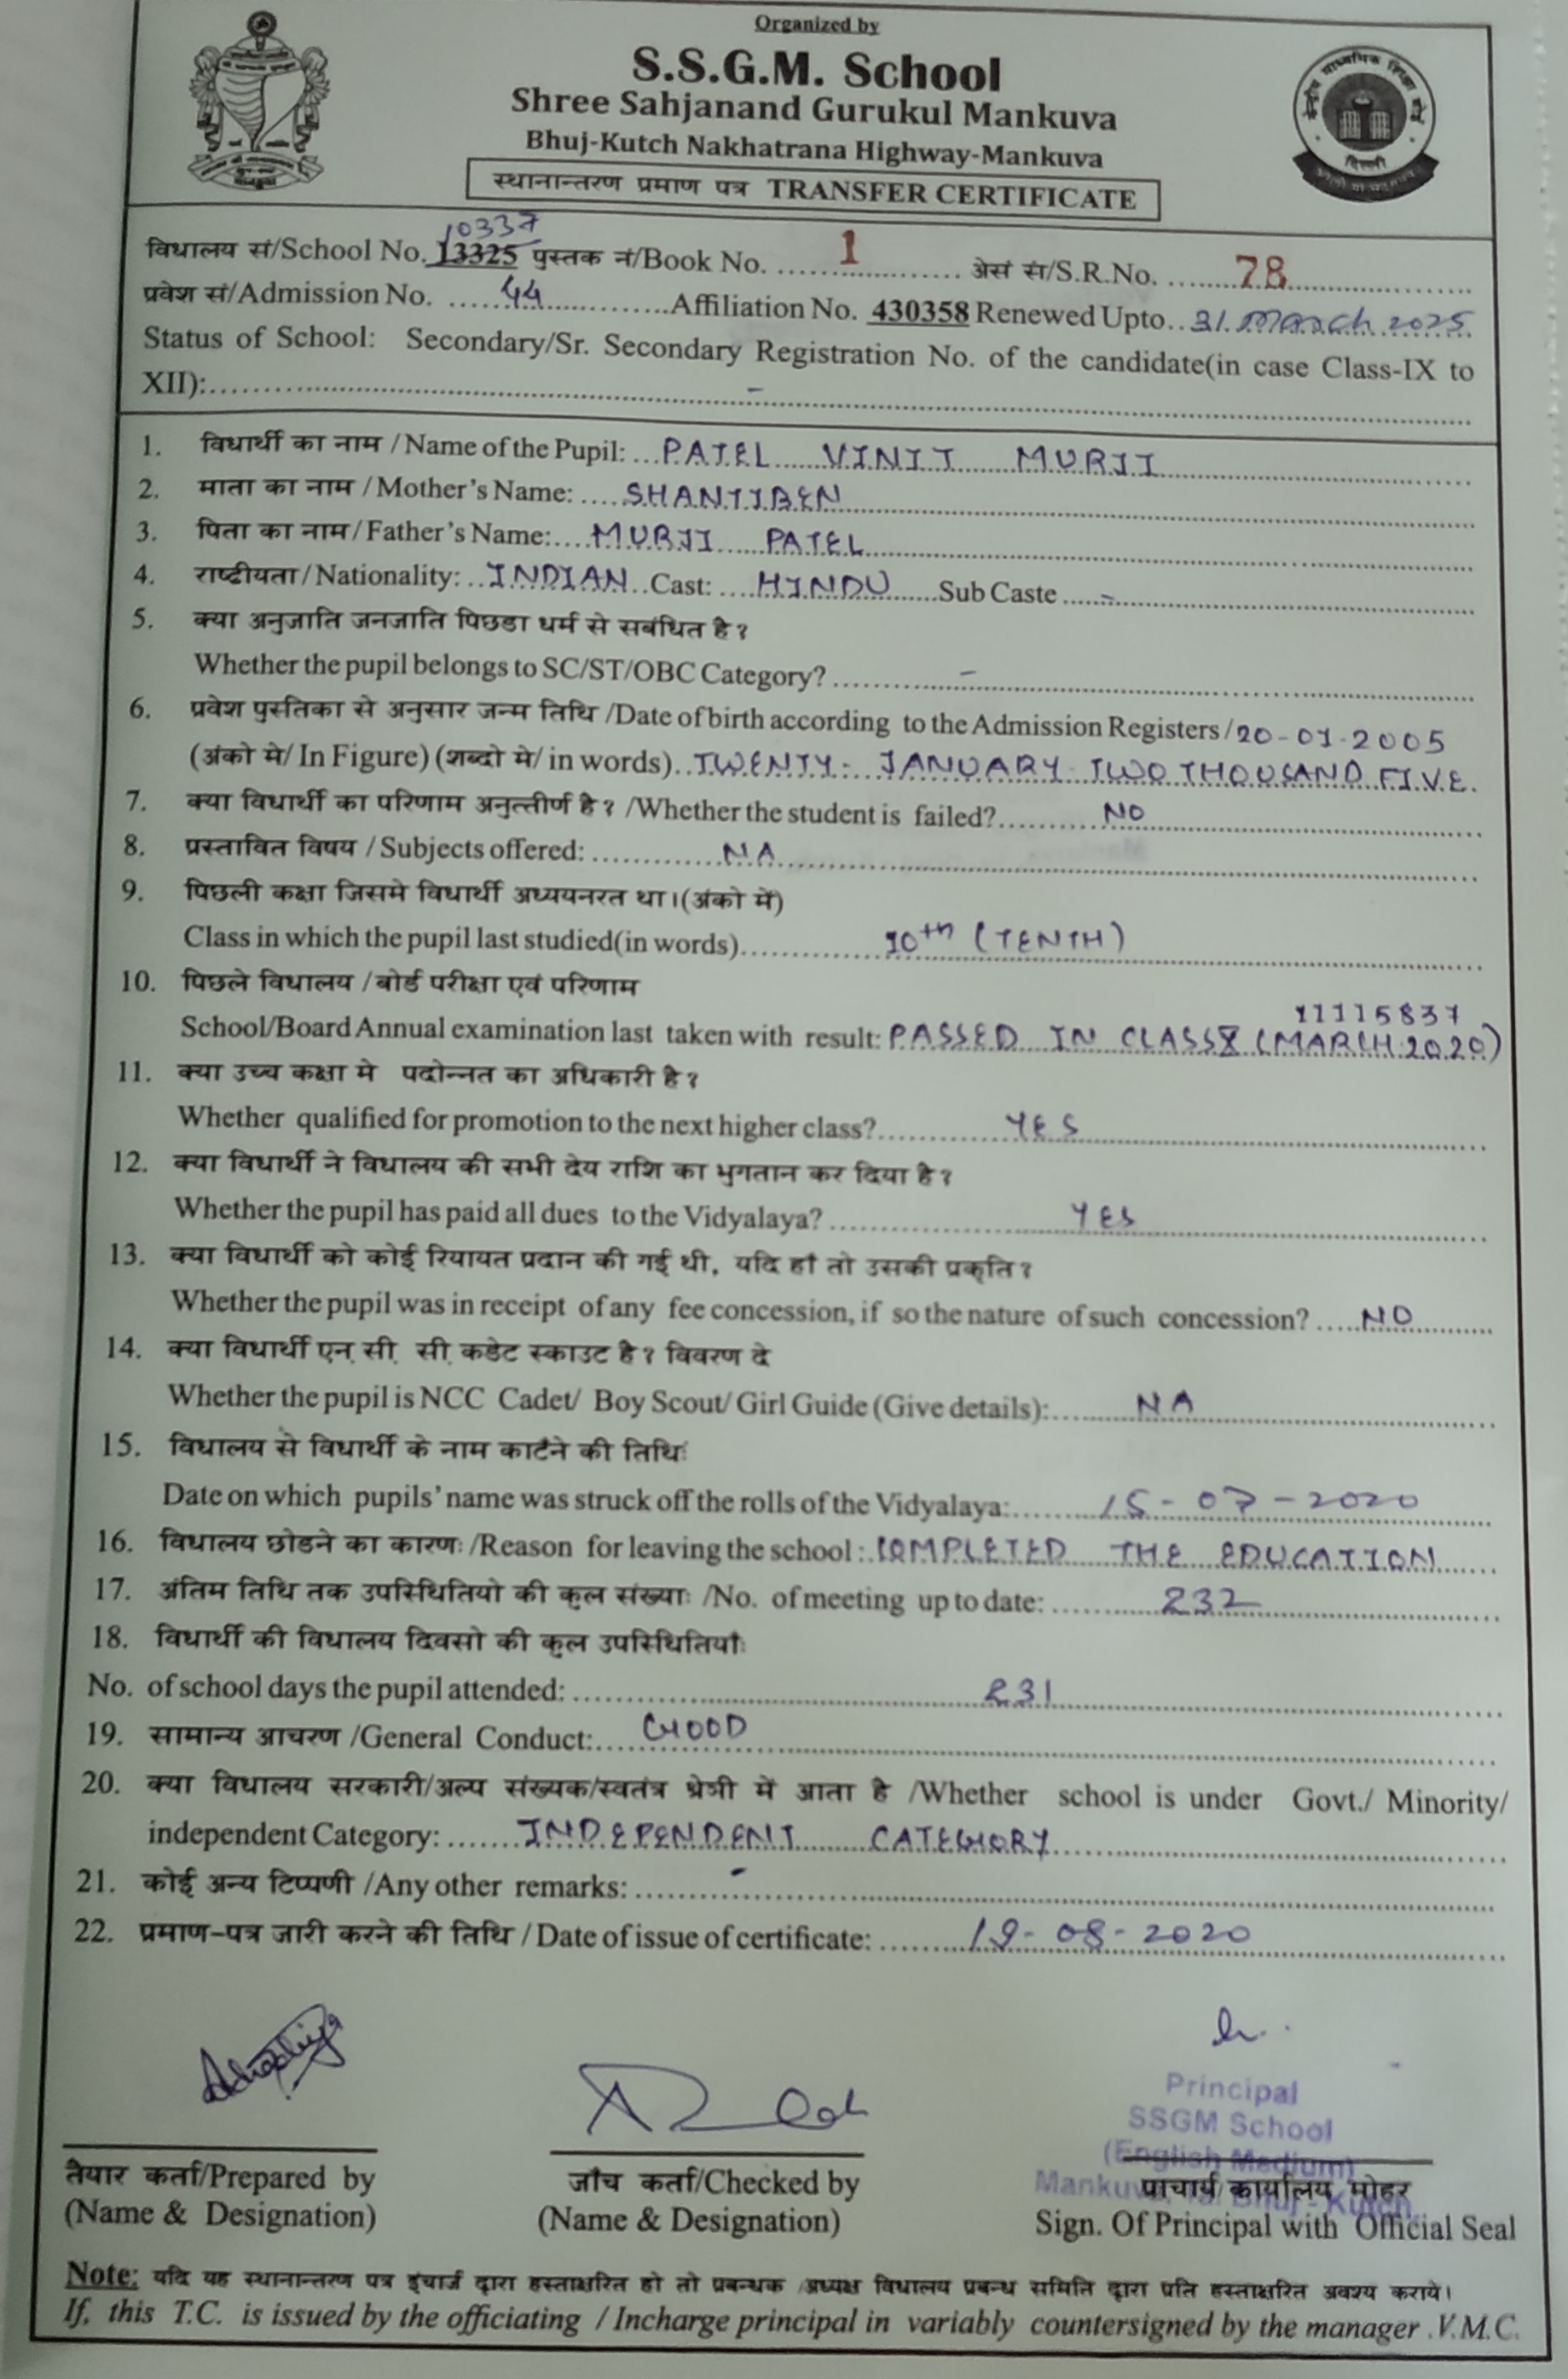 Organized by
S.S.G.M. School
Shree Sahjanand Gurukul Mankuva
Bhuj-Kutch Nakhatrana Highway-Mankuva
स्थानान्तरण प्रमाण पत्र TRANSFER CERTIFICATE
केन्द्रीय माध्यमिक शिक्षा बोर्ड
दिल्ली
10337
विधालय सं/School No. 13325 पुस्तक नं/Book No. 1 अेसं सं/S.R.No. 78
प्रवेश सं/Admission No. 44 Affiliation No. 430358 Renewed Upto 31 March 2025
Status of School: Secondary/Sr. Secondary Registration No. of the candidate(in case Class-IX to
XII): -
1. विधार्थी का नाम / Name of the Pupil: PATEL VINIT MURJI
2. माता का नाम / Mother's Name: SHANTIBEN
3. पिता का नाम / Father's Name: MURJI PATEL
4. राष्टीयता / Nationality: INDIAN Cast: HINDU Sub Caste -
5. क्या अनुजाति जनजाति पिछडा धर्म से सबंधित है?
Whether the pupil belongs to SC/ST/OBC Category? -
6. प्रवेश पुस्तिका से अनुसार जन्म तिथि /Date of birth according to the Admission Registers / 20-01-2005
(अंको मे/ In Figure) (शब्दो मे/ in words) TWENTY- JANUARY TWO THOUSAND FIVE
7. क्या विधार्थी का परिणाम अनुत्तीर्ण है? /Whether the student is failed? NO
8. प्रस्तावित विषय / Subjects offered: NA
9. पिछली कक्षा जिसमे विधार्थी अध्ययनरत था।(अंको में)
Class in which the pupil last studied(in words) 10th (TENTH)
10. पिछले विधालय / बोर्ड परीक्षा एवं परिणाम
11115837
School/Board Annual examination last taken with result: PASSED IN CLASS X (MARCH 2020)
11. क्या उच्च कक्षा मे पदोन्नत का अधिकारी है?
Whether qualified for promotion to the next higher class? YES
12. क्या विधार्थी ने विधालय की सभी देय राशि का भुगतान कर दिया है?
Whether the pupil has paid all dues to the Vidyalaya? YES
13. क्या विधार्थी को कोई रियायत प्रदान की गई थी, यदि हाँ तो उसकी प्रकृति?
Whether the pupil was in receipt of any fee concession, if so the nature of such concession? NO
14. क्या विधार्थी एन. सी. सी. कडेट स्काउट है? विवरण दे
Whether the pupil is NCC Cadet/ Boy Scout/ Girl Guide (Give details): NA
15. विधालय से विधार्थी के नाम काटने की तिथिः
Date on which pupils' name was struck off the rolls of the Vidyalaya: 15-07-2020
16. विधालय छोडने का कारणः /Reason for leaving the school : COMPLETED THE EDUCATION
17. अंतिम तिथि तक उपस्थितियो की कुल संख्याः /No. of meeting up to date: 232
18. विधार्थी की विधालय दिवसो की कुल उपस्थितियाँः
No. of school days the pupil attended: 231
19. सामान्य आचरण /General Conduct: GOOD
20. क्या विधालय सरकारी/अल्प संख्यक/स्वतंत्र श्रेत्री में आता है /Whether school is under Govt./ Minority/
independent Category: INDEPENDENT CATEGORY
21. कोई अन्य टिप्पणी /Any other remarks: -
22. प्रमाण-पत्र जारी करने की तिथि / Date of issue of certificate: 19-08-2020
Principal
SSGM School
(English Medium)
Mankuva, Bhuj - Kutch
तैयार कर्ता/Prepared by जाँच कर्ता/Checked by प्राचार्य कार्यालय मोहर
(Name & Designation) (Name & Designation) Sign. Of Principal with Official Seal
Note: यदि यह स्थानान्तरण पत्र इंचार्ज द्वारा हस्ताक्षरित हो तो प्रबन्धक /अध्यक्ष विधालय प्रबन्ध समिति द्वारा प्रति हस्ताक्षरित अवश्य कराये।
If, this T.C. is issued by the officiating / Incharge principal in variably countersigned by the manager .V.M.C.